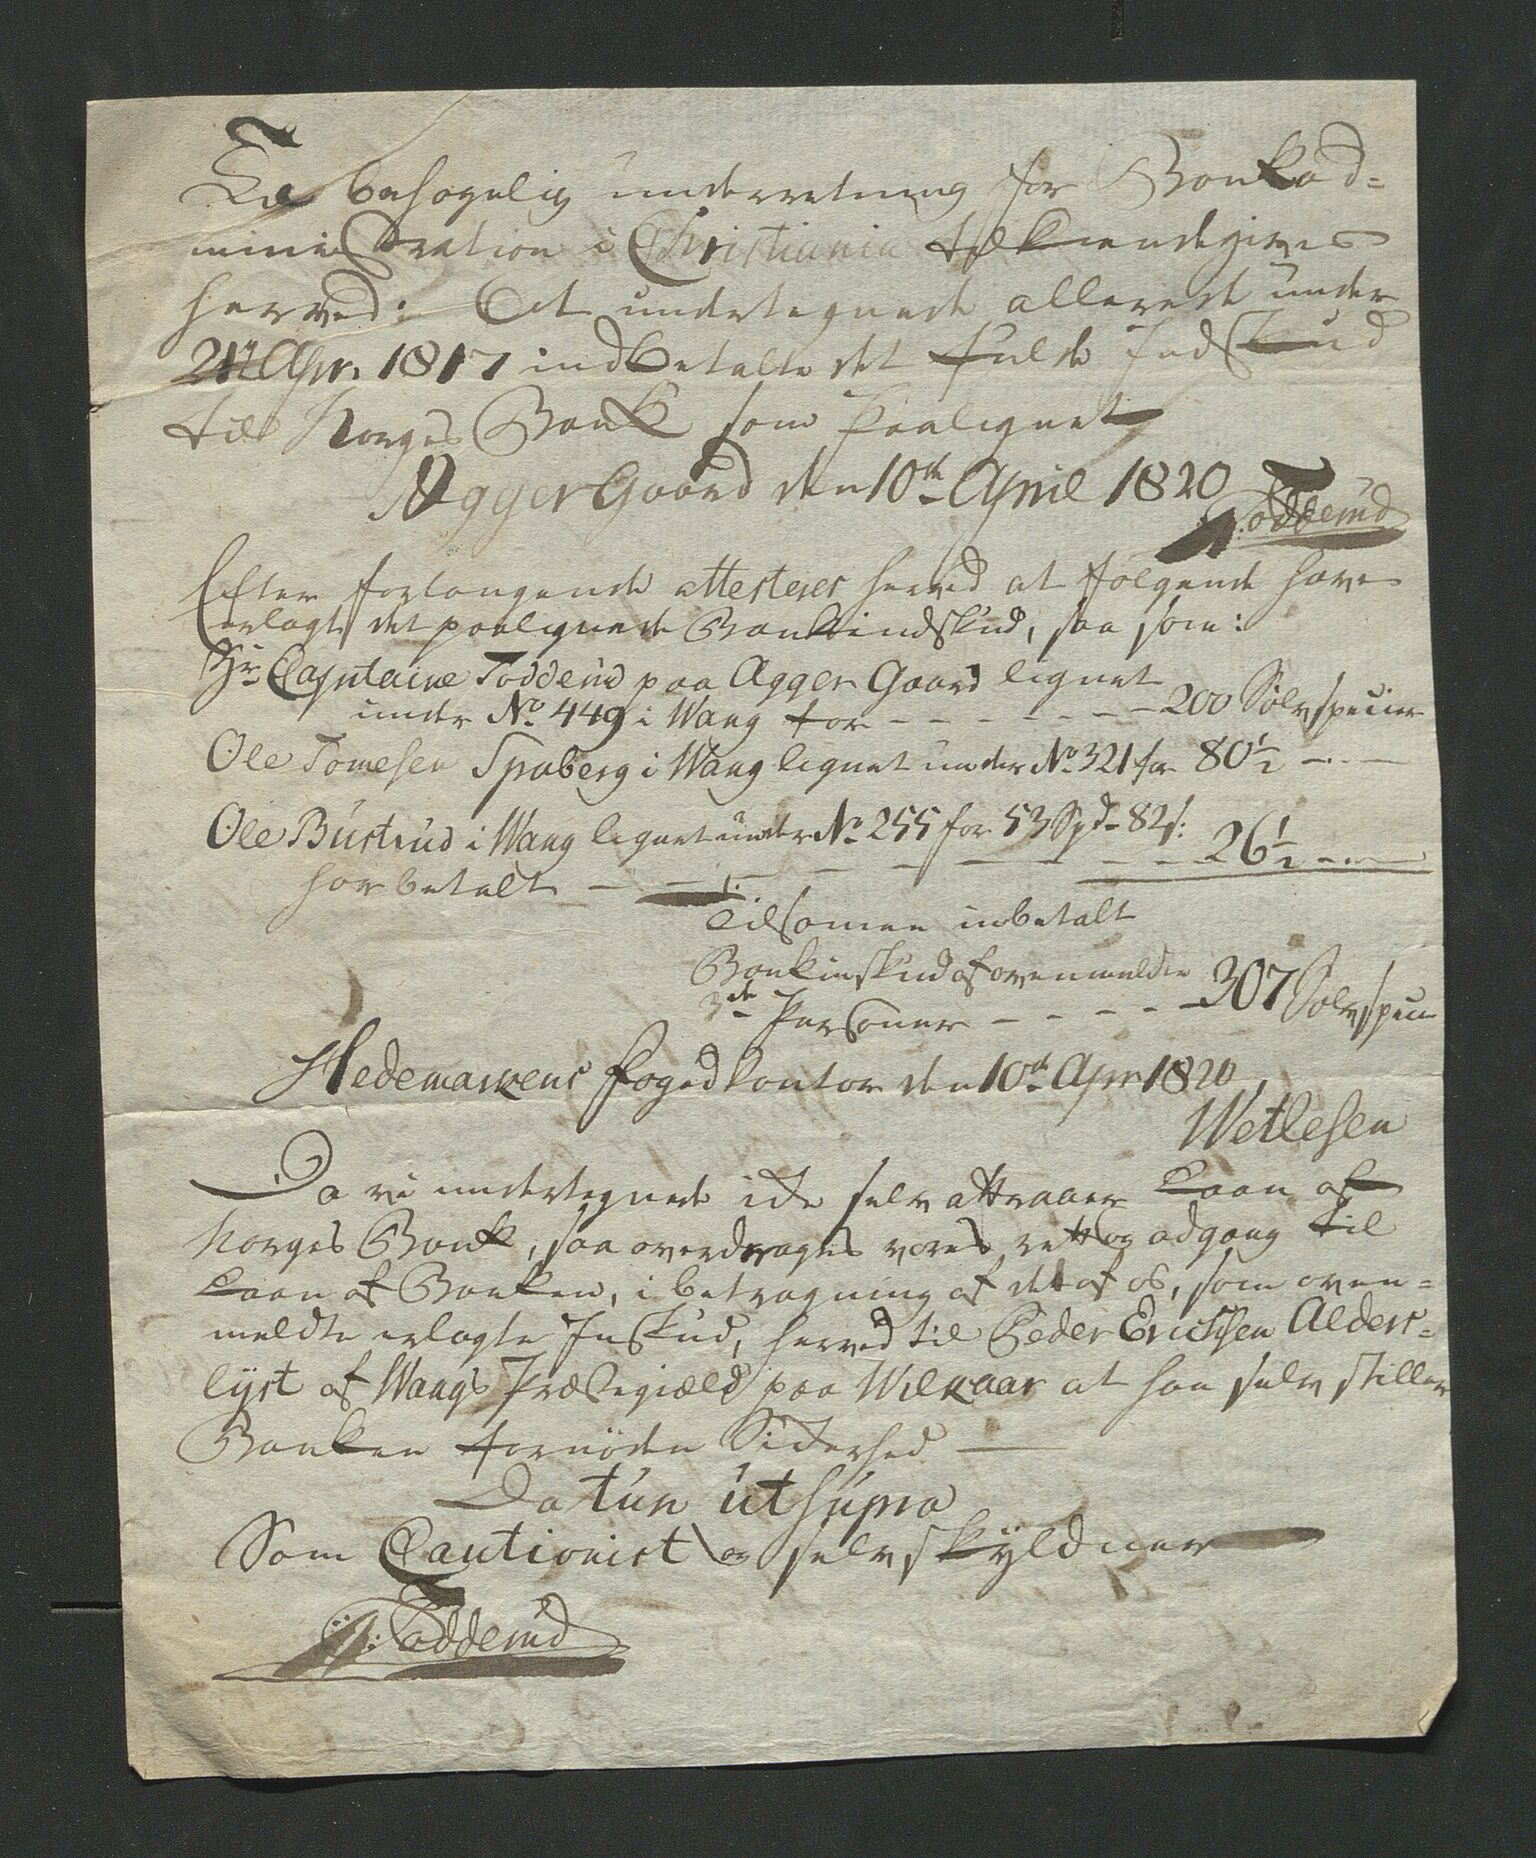 Til behagelig underretning for Bankad=
ministration i Christiania tilkiendegives
herved: At undertegnede allerede under
21de Apr. 1817 indbetalte det fulde Indskud
til Norges Bank som Paalignet
Agger Gaard den 10de April 1820
Todderud
Efter forlangende attesteres herved at følgende have
erlagt det paalignede Bankindskud, saa som:
Hr Captaine Todderud paa Agger Gaard lignet
under No. 449 i Wang for - - - - - - - 200 Sølvspecier
Ole Tomesen Spaberg i Wang lignet under No. 321 for 80 1/2 - - -
Ole Bustrud i Wang lignet under No. 255 for 53 Spd. 82 s:
har betalt - - - - - - - - - 26 1/2 - - -
Tilsamen inbetalt
Bankinskud af ovenmeldte
3de Personer - - - - - 307 Sølvspecier
Hedemarkens Fogedkontor den 10de Apr 1820
Wetlesen
Da vi undertegnede icke selv attraaer Laan af
Norges Bank, saa overdrages vores rett og adgang til
Laan af Banken, i betragtning af dett af os, som oven=
meldte erlagte Inskud, herved til Peder Erichsen Alders=
lyst af Wangs Præstegiæld paa Wilkaar at han selv stiller
Banken fornøden Sickerhed —
Datun ut supra
Som Cautionist og selvskyldner
Todderud